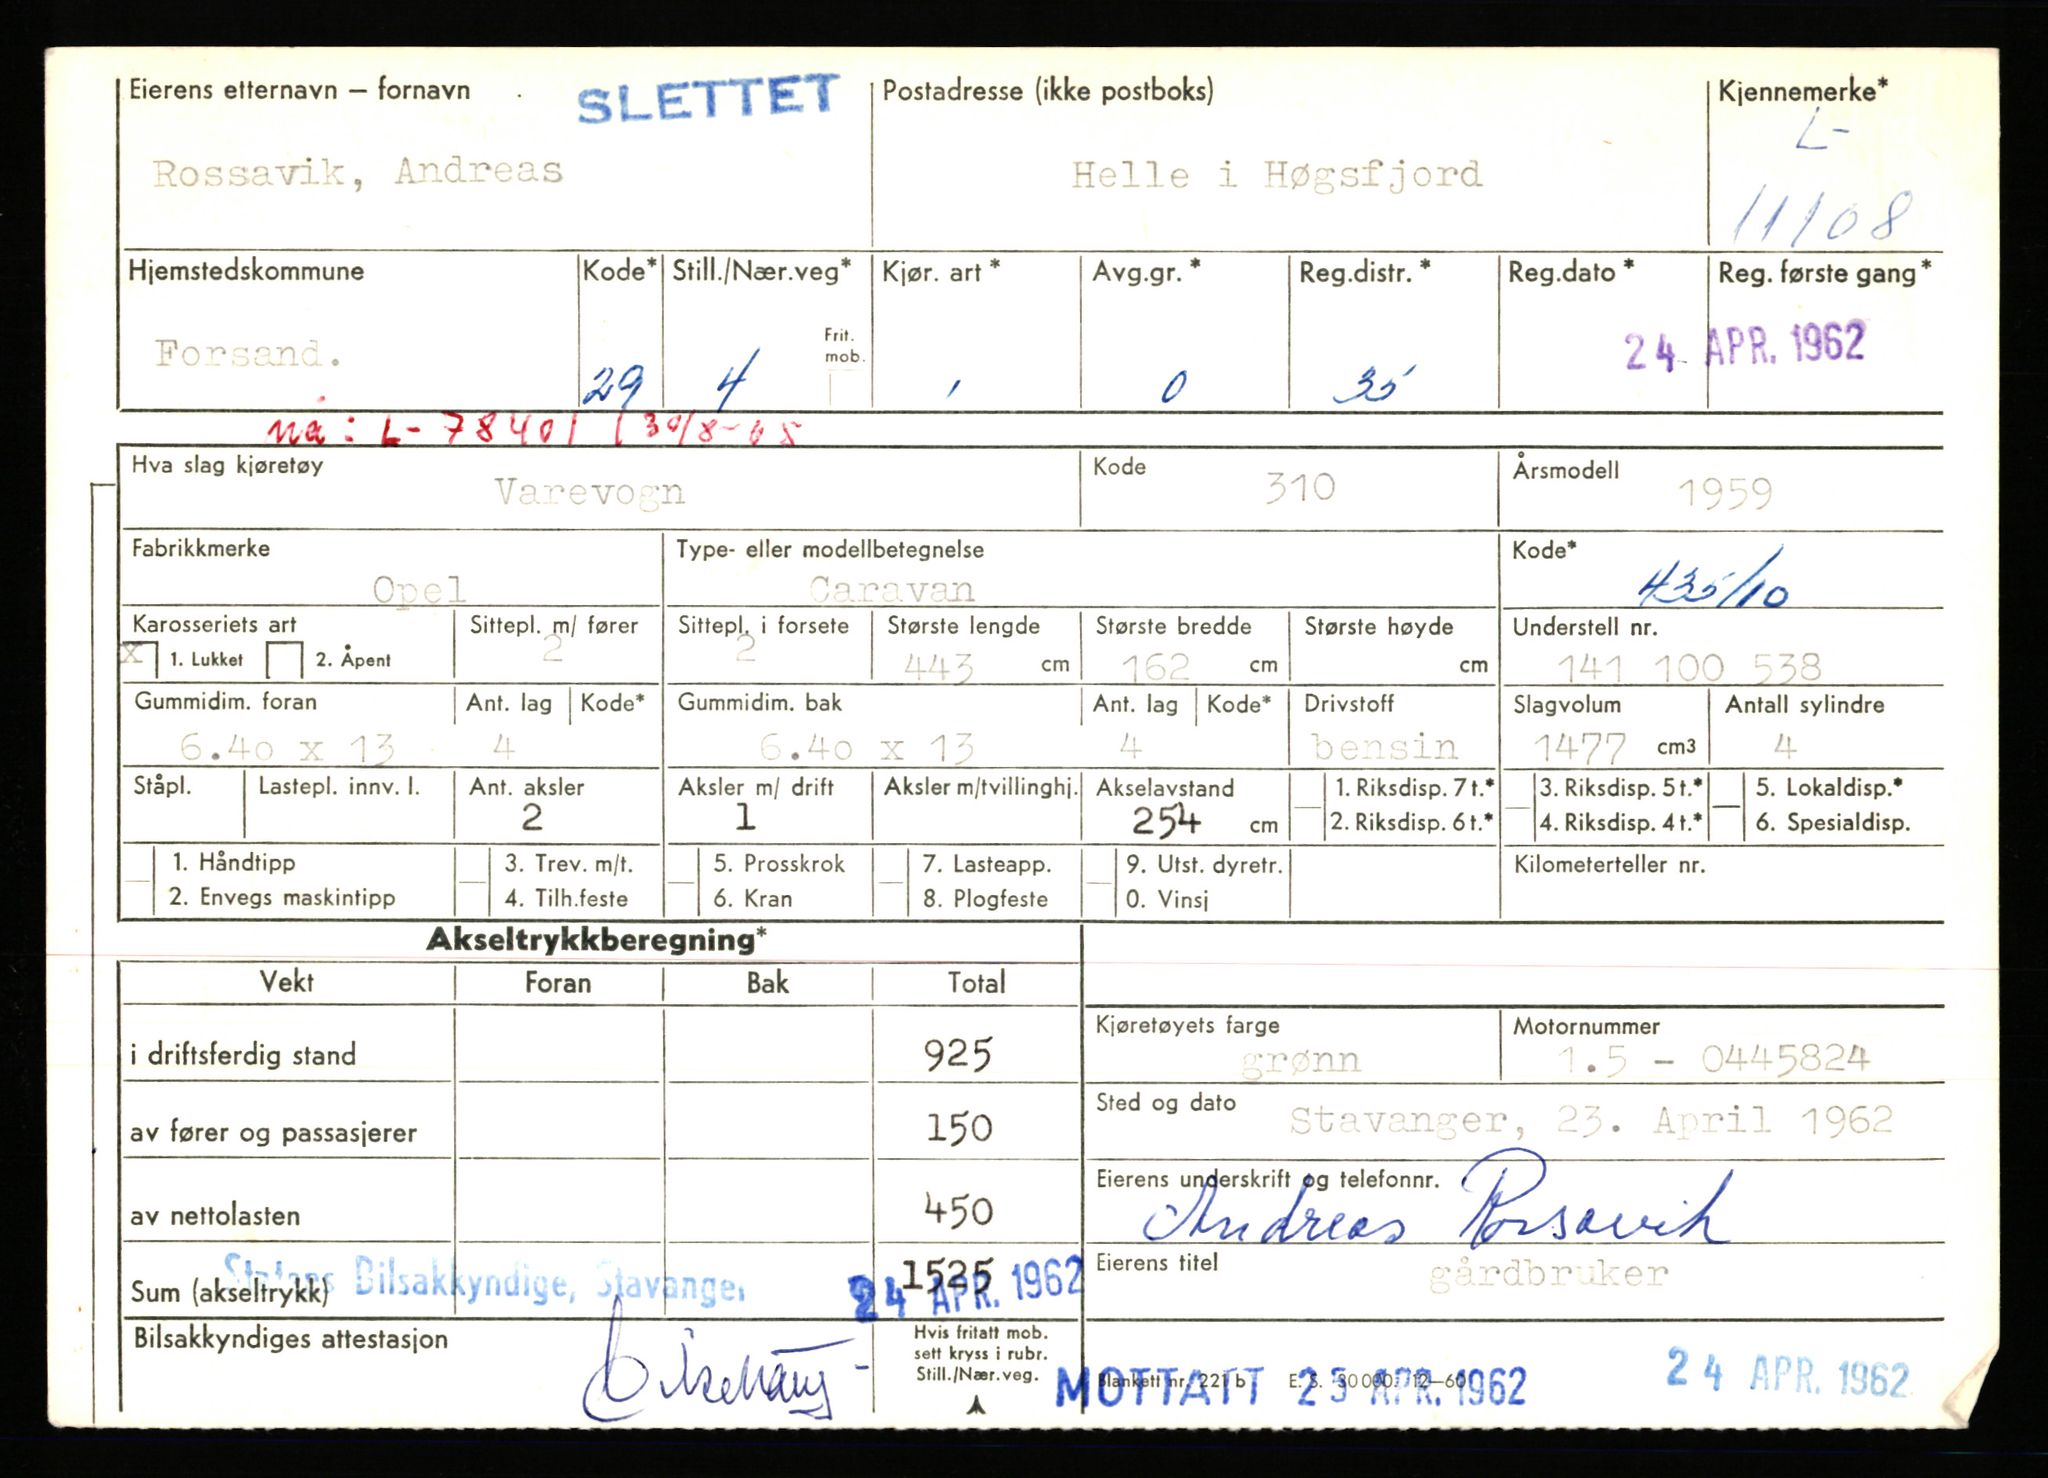 Eierens etternavn – fornavn
SLETTET
Postadresse (ikke postboks)
Kjennemerke*
Rossavik, Andreas
Helle i Høgsfjord
L-
11108
Hjemstedskommune
Kode*
Still./Nær.veg*
Kjør. art *
Avg.gr. *
Reg.distr. *
Reg.dato *
Reg. første gang*
Forsand.
29
4
Frit. mob.
0
35
24 APR. 1962
nå: L- 78401 (30/8-65
Hva slag kjøretøy
Varevogn
Kode
310
Årsmodell
1959
Fabrikkmerke
Opel
Type- eller modellbetegnelse
Caravan
Kode*
435/10
Karosseriets art
x 1. Lukket 2. Åpent
Sittepl. m/ fører
2
Sittepl. i forsete
2
Største lengde
443 cm
Største bredde
162 cm
Største høyde
cm
Understell nr.
141 100 538
Gummidim. foran
6.40 x 13
Ant. lag
4
Kode*
Gummidim. bak
6.40 x 13
Ant. lag
4
Kode*
Drivstoff
bensin
Slagvolum
1477 cm3
Antall sylindre
4
Ståpl.
Lastepl. innv. l.
Ant. aksler
2
Aksler m/ drift
1
Aksler m/tvillinghj.
Akselavstand
254 cm
1. Riksdisp. 7 t.*
2. Riksdisp. 6 t.*
3. Riksdisp. 5 t.*
4. Riksdisp. 4 t.*
5. Lokaldisp.*
6. Spesialdisp.
1. Håndtipp
2. Envegs maskintipp
3. Trev. m/t.
4. Tilh.feste
5. Prosskrok
6. Kran
7. Lasteapp.
8. Plogfeste
9. Utst. dyretr.
0. Vinsj
Kilometerteller nr.
Akseltrykkberegning*
Vekt
Foran
Bak
Total
i driftsferdig stand
925
av fører og passasjerer
150
av nettolasten
450
Sum (akseltrykk)
1525
Statens Bilsakkyndige, Stavanger
24 APR. 1962
Bilsakkyndiges attestasjon
Hvis fritatt mob.
sett kryss i rubr.
Still./Nær.veg.
Kjøretøyets farge
grønn
Motornummer
1.5 - 0445824
Sted og dato
Stavanger, 23. April 1962
Eierens underskrift og telefonnr.
Andreas Rossavik
Eierens titel
gårdbruker
Blankett nr. 221 b E. S. 30 000. 12–60
MOTTATT 25 APR. 1962
24 APR. 1962